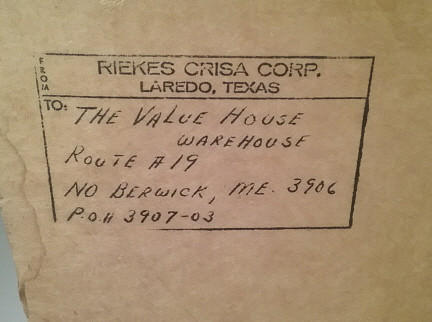 FROM
RIEKES CRISA CORP.
LAREDO, TEXAS
TO:
THE VALUE HOUSE
WAREHOUSE
ROUTE #19
NO BERWICK, ME. 3906
P.O# 3907-03